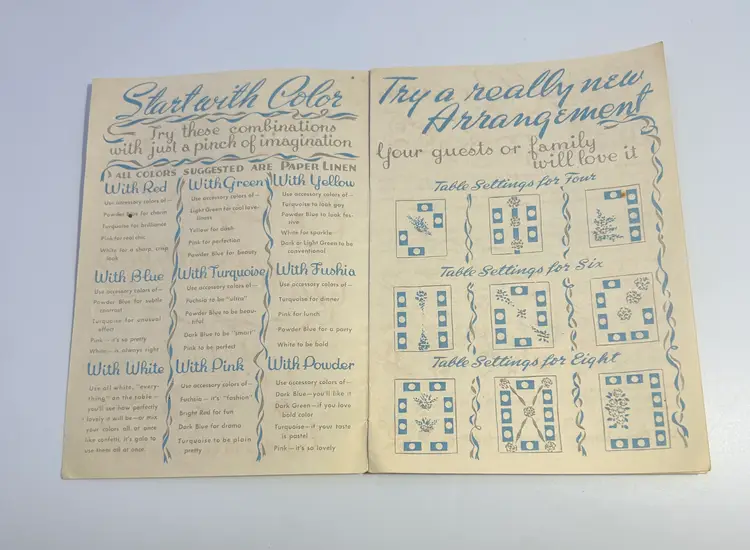 Start with Color
Try these combinations
with just a pinch of imagination
ALL COLORS SUGGESTED ARE PAPER LINEN
With Red
Use accessory colors of—
Powder Blue for charm
Turquoise for brilliance
Pink for real chic
White for a sharp, crisp
look
With Green
Use accessory colors of—
Light Green for cool love-
liness
Yellow for dash
Pink for perfection
Powder Blue for beauty
With Yellow
Use accessory colors of—
Turquoise to look gay
Powder Blue to look fes-
tive
White for sparkle
Dark or Light Green to be
conventional
With Blue
Use accessory colors of—
Powder Blue for subtle
contrast
Turquoise for unusual
effect
Pink—it's so pretty
White—is always right
With Turquoise
Use accessory colors of—
Fuchsia to be "ultra"
Powder Blue to be beau-
tiful
Dark Blue to be "smart"
Pink to be perfect
With Fushia
Use accessory colors of—
Turquoise for dinner
Pink for lunch
Powder Blue for a party
White to be bold
With White
Use all white, "every-
thing" on the table—
you'll see how perfectly
lovely it will be—or mix
your colors all at once
like confetti, it's gala to
use them all at once
With Pink
Use accessory colors of—
Fuchsia—it's "fashion"
Bright Red for fun
Dark Blue for drama
Turquoise to be plain
pretty
With Powder
Use accessory colors of—
Dark Blue—you'll like it
Dark Green—if you love
bold color
Turquoise—if your taste
is pastel
Pink—it's so lovely
Try a really new
Arrangement
Your guests or family
will love it
Table Settings for Four
Table Settings for Six
Table Settings for Eight